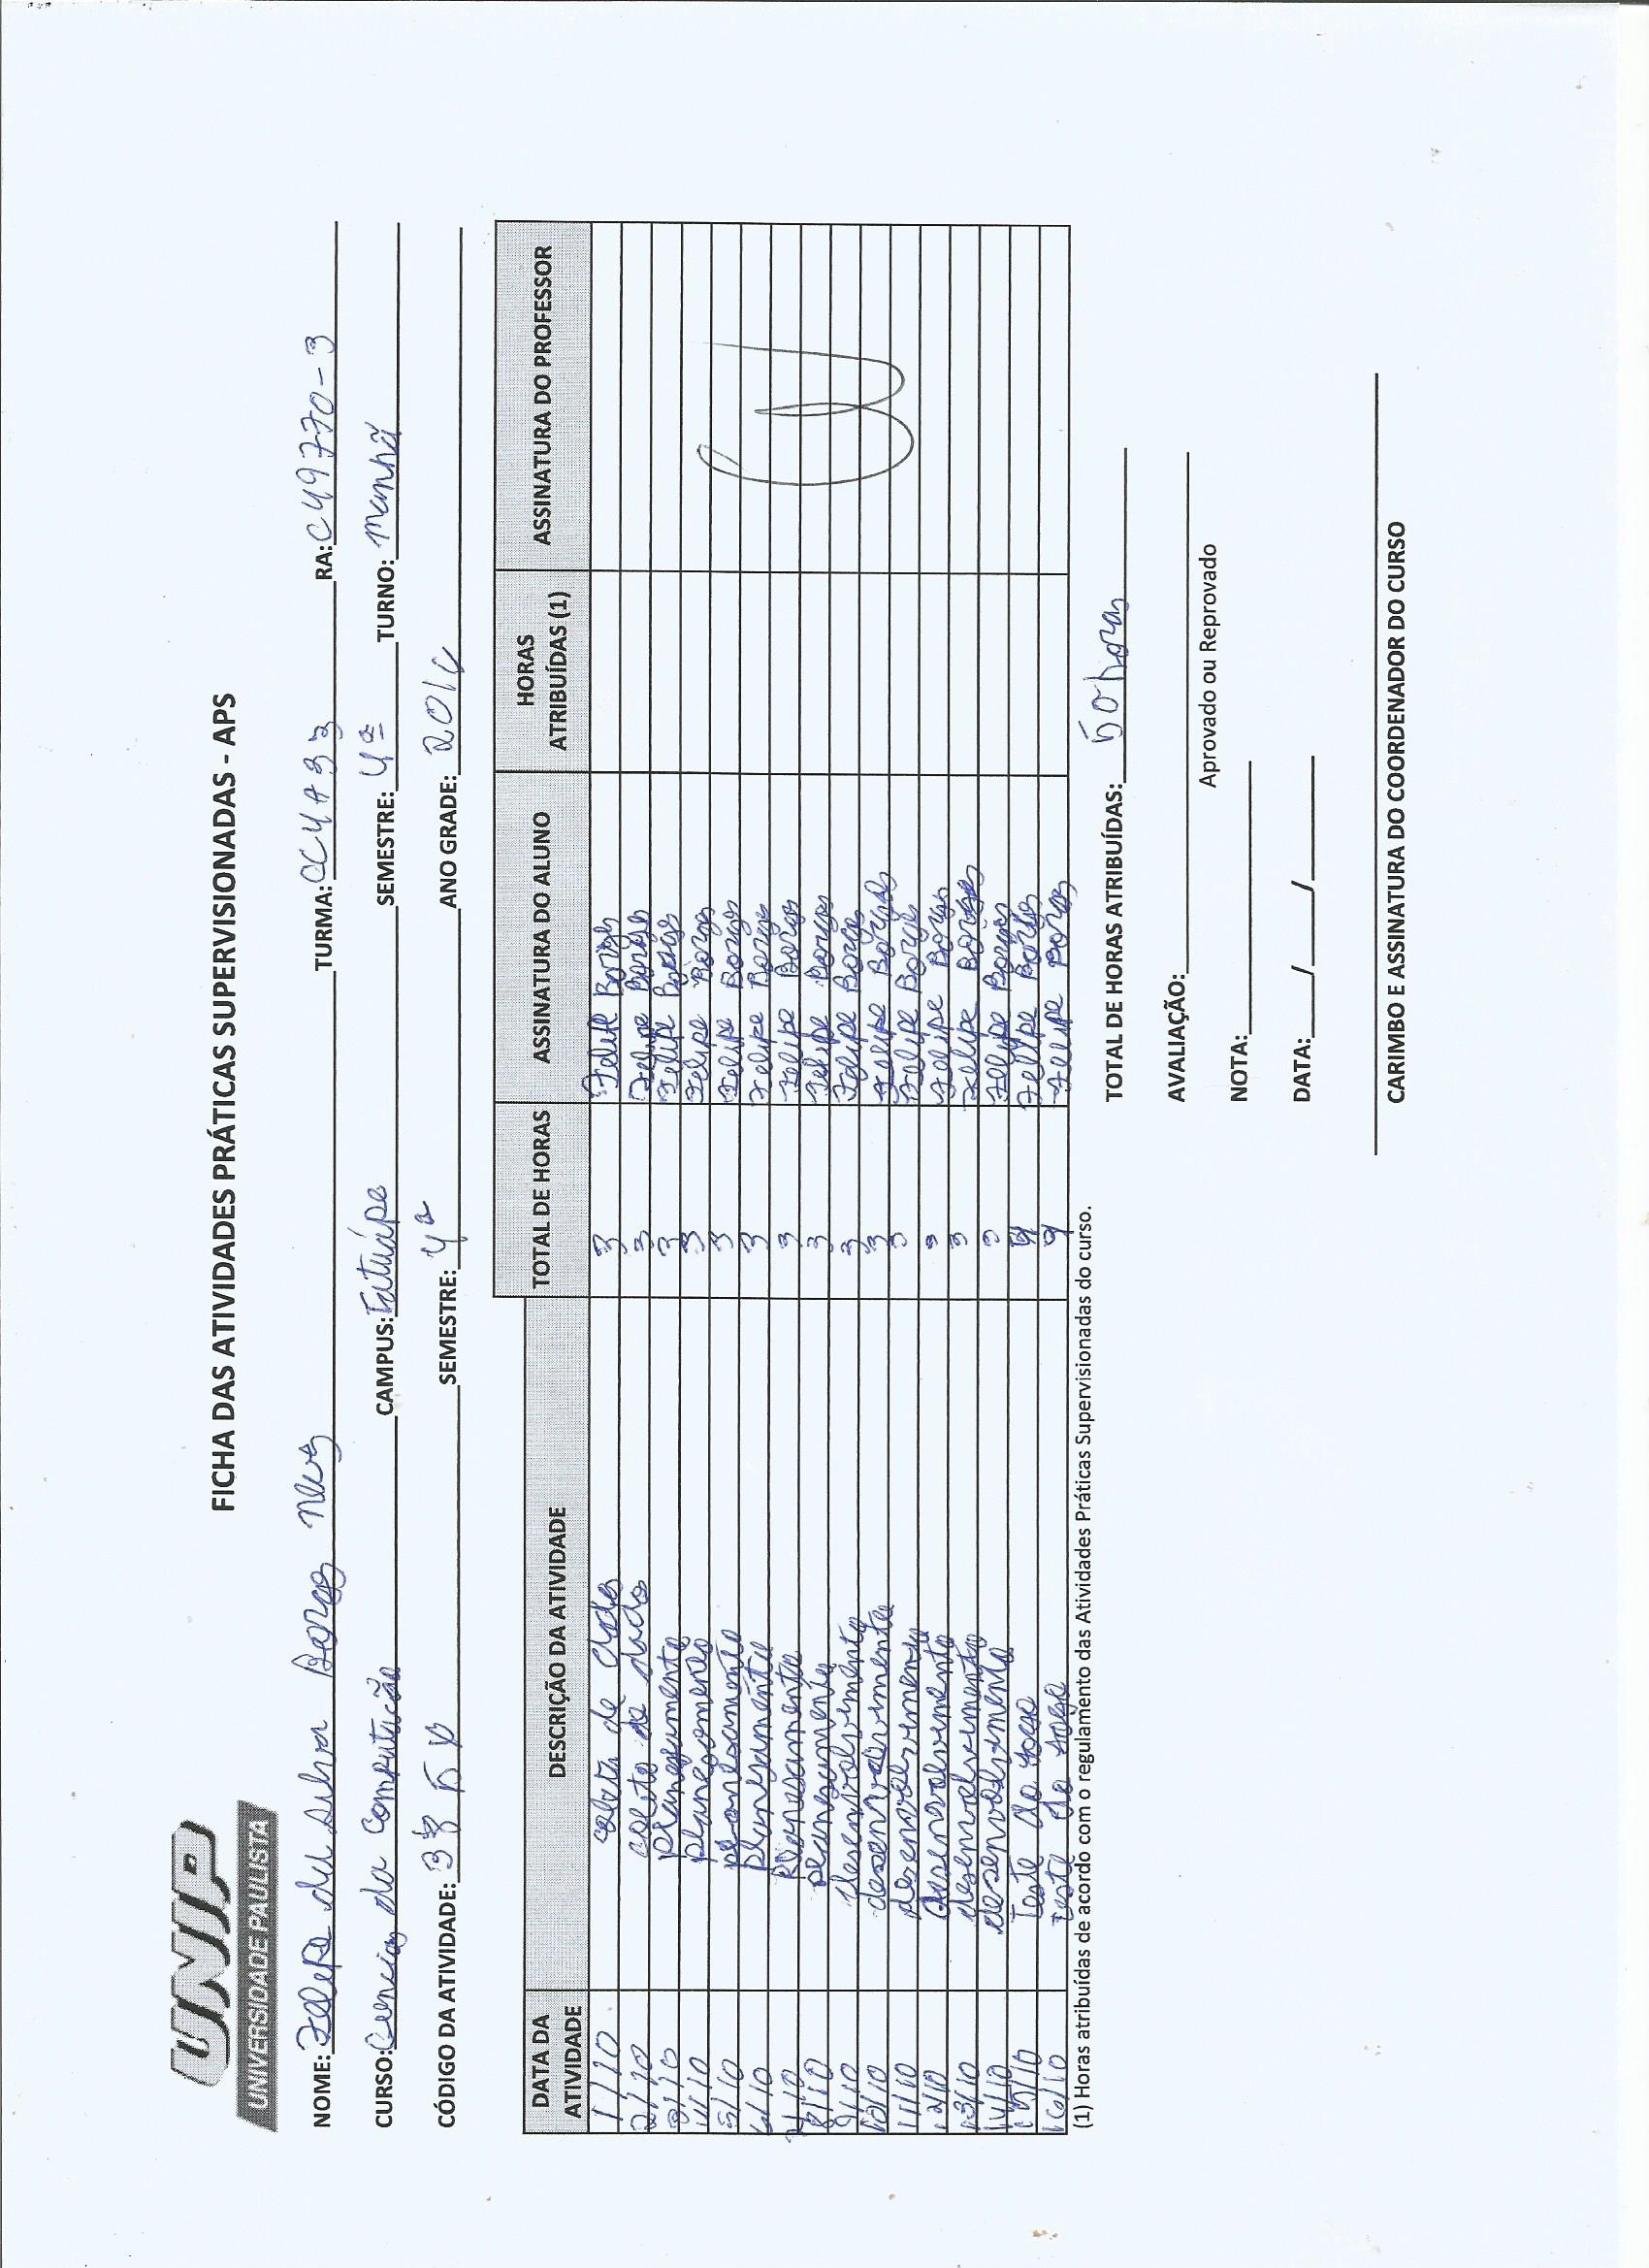 UNIP
UNIVERSIDADE PAULISTA
FICHA DAS ATIVIDADES PRÁTICAS SUPERVISIONADAS - APS
NOME: Felipe da Silva Borges Neves TURMA: CC4A33 RA: C49770-3
CURSO: Ciencias da Computação CAMPUS: Tatuápe SEMESTRE: 4ª TURNO: manhã
CÓDIGO DA ATIVIDADE: SEMESTRE: 4ª ANO GRADE:
DATA DA ATIVIDADE DESCRIÇÃO DA ATIVIDADE TOTAL DE HORAS ASSINATURA DO ALUNO HORAS ATRIBUÍDAS (1) ASSINATURA DO PROFESSOR
1/10 coleta de dados 3 Felipe Borges
2/10 coleta de dados 3 Felipe Borges
3/10 planejamento 3 Felipe Borges
4/10 planejamento 3 Felipe Borges
5/10 planejamento 3 Felipe Borges
6/10 planejamento 3 Felipe Borges
7/10 planejamento 3 Felipe Borges
8/10 planejamento 3 Felipe Borges
9/10 desenvolvimento 3 Felipe Borges
10/10 desenvolvimento 3 Felipe Borges
11/10 desenvolvimento 3 Felipe Borges
12/10 desenvolvimento 3 Felipe Borges
13/10 desenvolvimento 3 Felipe Borges
14/10 desenvolvimento 3 Felipe Borges
15/10 Teste do jogo Felipe Borges
16/10 teste do jogo Felipe Borges
(1) Horas atribuídas de acordo com o regulamento das Atividades Práticas Supervisionadas do curso.
TOTAL DE HORAS ATRIBUÍDAS: 50 horas
AVALIAÇÃO:
Aprovado ou Reprovado
NOTA:
DATA: / /
CARIMBO E ASSINATURA DO COORDENADOR DO CURSO